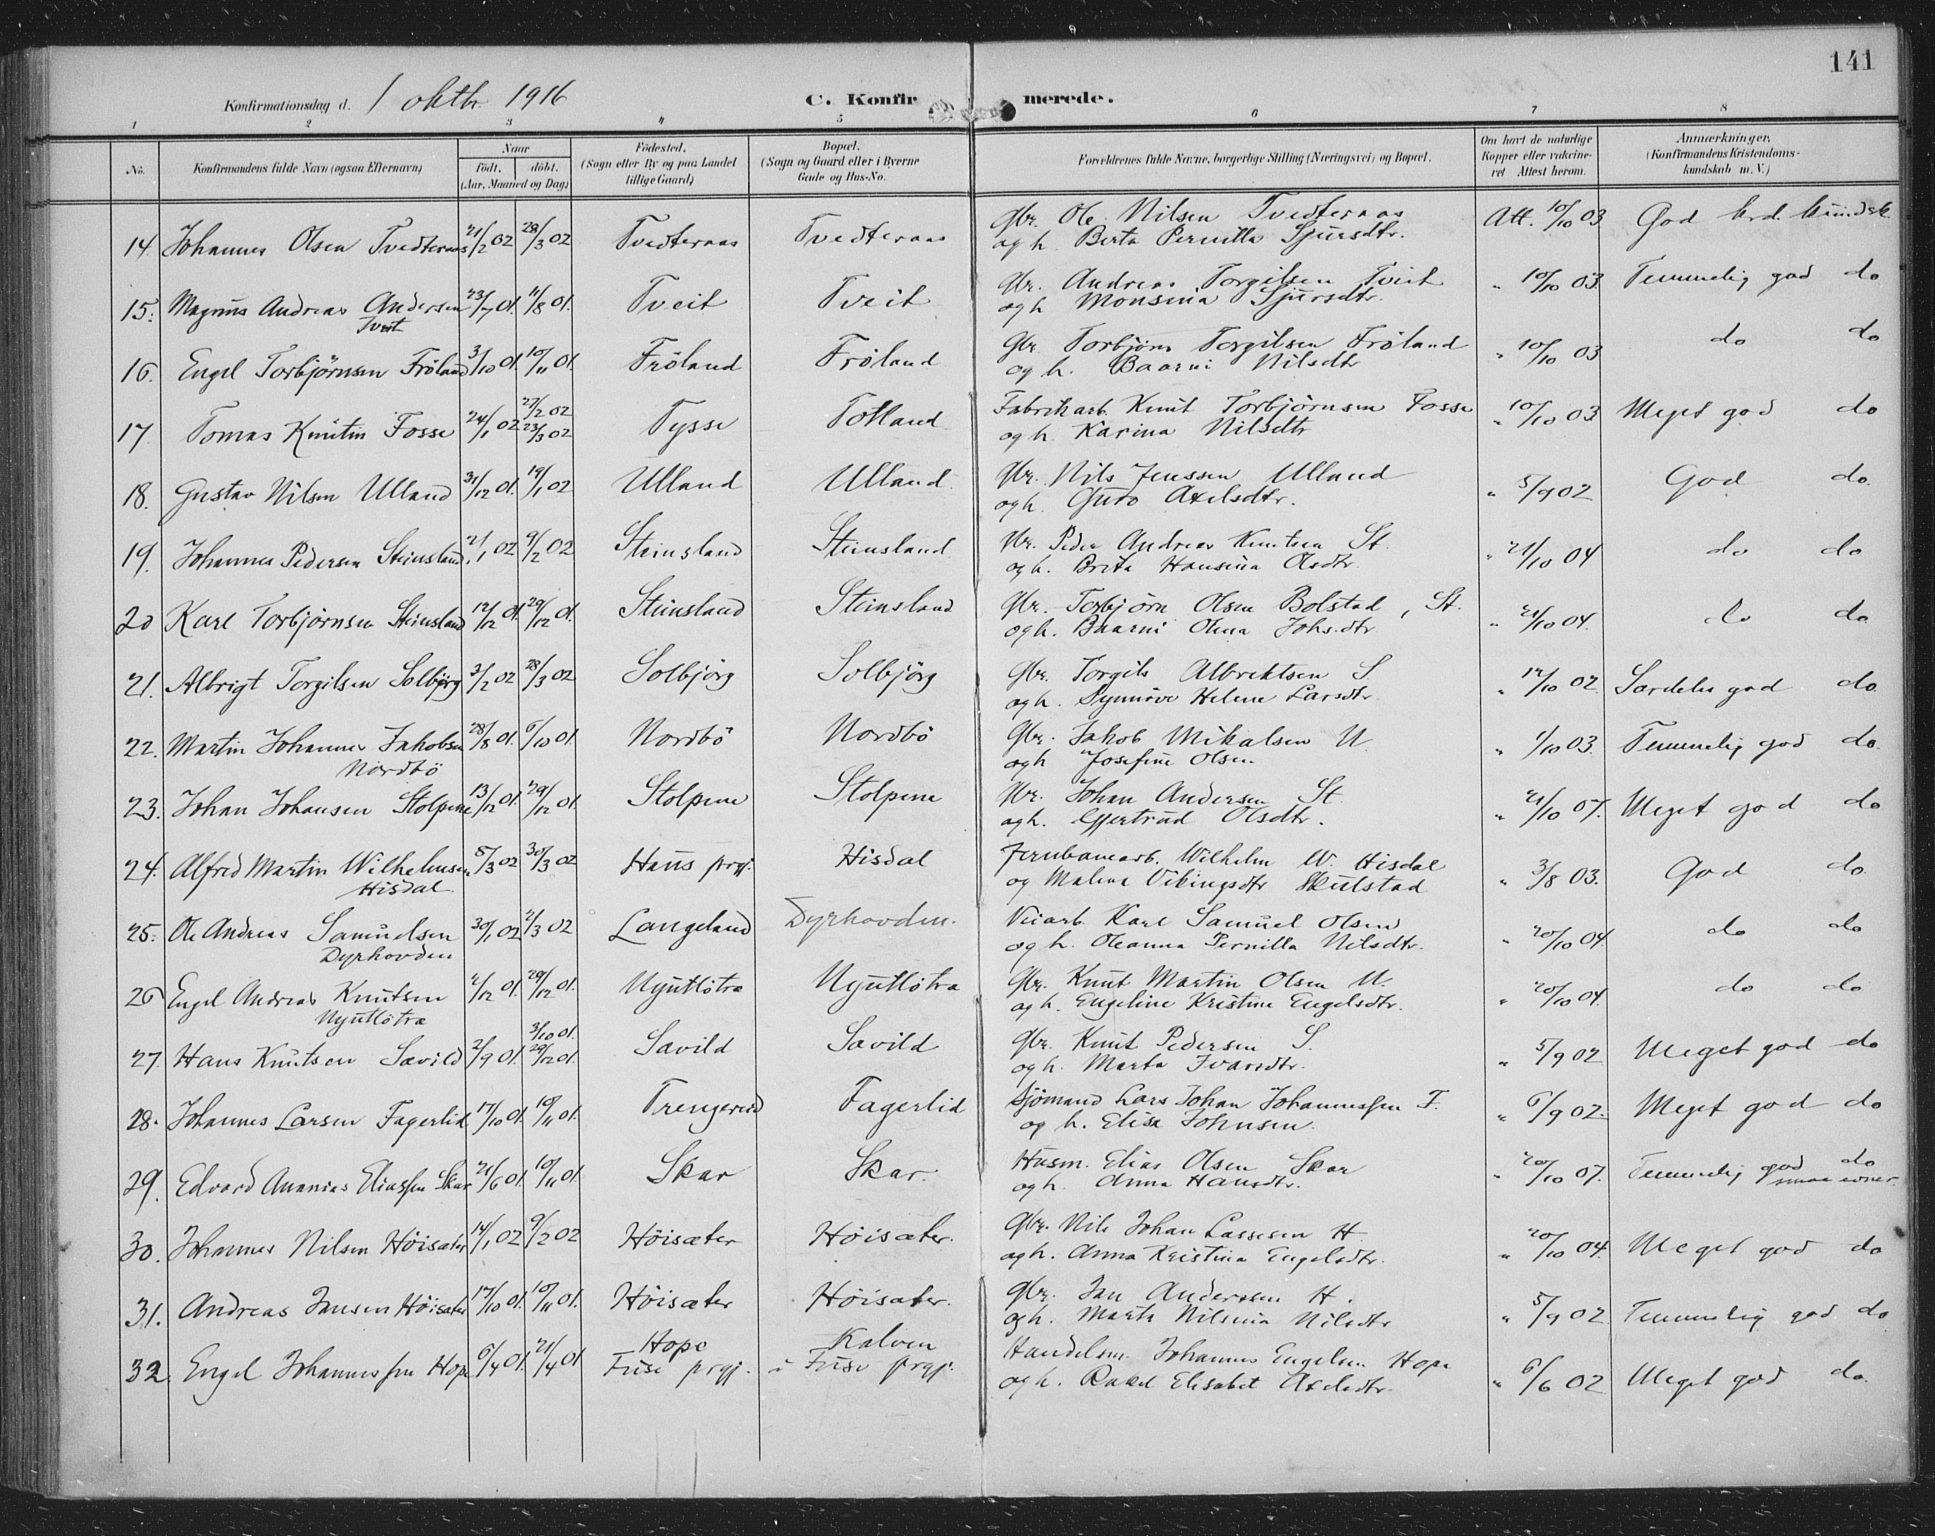 141
Konfirmationsdag d. 1 oktbr. 1916 C. Konfirmerede.
1 2 3 4 5 6 7 8
No. Konfirmandens fulde Navn (ogsaa Efternavn) Naar født. døbt. (Aar, Maaned og Dag) Födested. (Sogn eller By og paa Landet tillige Gaard) Bopæl. (Sogn og Gaard eller i Byerne Gade og Hus-No. Forældrenes fulde Navne, borgerlige Stilling (Næringsvei) og Bopæl. Om havt de naturlige Kopper eller vakcineret Attest herom. Anmærkninger. (Konfirmandens Kristendomskundskab m. V.)
14. Johannes Olsen Tvedteraas 21/2 02 28/3 02 Tvedteraas Tvedteraas Gbr. Ole Nilsen Tvedteraas Att. 10/10 03 God krd. kundsk.
og h. Berta Pernilla Sjursdtr.
15. Magnus Andreas Andersen 23/7 01. 11/8 01. Tveit Tveit Gbr. Andreas Torgilsen Tveit " 10/10 03. Temmelig god do
Tveit og h. Monsina Sjursdtr.
16. Engel Torbjørnsen Fröland 3/10 01. 10/11 01. Fröland Fröland Gbr. Torbjörn Torgilsen Fröland " 10/10 03 do do
og h. Baarni Nilsdtr
17. Tomas Knutsn Fosse 24/1 02 27/2 02 23/3 02 Tysse Totland Fabrikarb. Knut Torbjørnsen Fosse " 10/10 03 Meget god do
og h. Karina Nilsdtr
18. Gustav Nilsen Ulland 31/12 01. 19/1 02 Ulland Ulland. Gbr. Nils Jenssen Ulland " 5/9 02 God do.
og h. Guro Axelsdtr.
19. Johannes Pedersen Steinsland 21/1 02 9/2 02 Steinsland Steinsland. Gbr. Peder Andreas Knutsen St. " 21/10 04 do do
og h. Brita Hansina Olsdtr.
20 Karl Torbjørnsen Steinsland 12/12 01. 29/12 01. Steinsland Steinsland Gbr. Torbjørn Olsen Bolstad, St. " 21/10 04. do do.
og h. Baarni Olina Johs.dtr
21. Albrigt Torgilsen Solbjörg 3/2 02 28/3 02 Solbjörg Solbjörg Gbr. Torgils Albrektsen S. " 12/10 02. Særdeles god do.
og h. Synnöve Helene Larsdtr.
22. Martin Johannes Jakobsen 28/8 01. 6/10 01. Nordbö Nordbö Gbr. Jakob Mikalsen N. " 1/10 03. Temmelig god do.
Nordbö og h Josefine Olsen.
23. Johan Johansen Stolpene 13/12 01. 29/12 01. Stolpene Stolpene Gbr. Johan Andersen St. " 21/10 07. Meget god do
og h. Gjertrud Olsdtr.
24. Alfred Martin Wilhelmsen 5/3 02 30/3 02 Haus prgj. Hisdal Jernbanearb. Wilhelm W. Hisdal " 3/8 03. God do
Hisdal og Malena Vikingsdtr Skulstad
25. Ole Andreas Samuelsen 30/1 02 2/3 02 Langeland Dyrhovden. Veiarb. Karl Samuel Olsen " 20/10 04. do do
Dyrhovden og h. Oleanna Pernilla Nilsdtr.
26 Engel Andreas Knutsen 2/12 01. 29/12 01. Nyutlötra Nyutlötra Gbr. Knut Martin Olsen N. " 20/10 04. do do
Nyutlötra og h. Engeline Kristine Engelsdtr.
27. Hans Knutsen Sævild 2/9 01. 3/10 01. 29/12 01. Sævild Sævild Gbr. Knut Pedersen S. " 5/9 02 Meget god do
og h. Marta Ivarsdtr.
28. Johannes Larsen Fagerlid 17/10 01. 10/11 01. Trengereid Fagerlid Sjömand Lars Johan Johannessen F. " 6/9 02. Meget god do
og h. Elisa Johnsen.
29. Edvard Ananias Eliassen Skar 21/6 01. 10/11 01. Skar Skar. Husm. Elias Olsen Skar " 20/10 07. Temmelig god do
og h. Anna Hansdtr. smaa evner.
30. Johannes Nilsen Höisæter 14/1 02 9/2 02 Höisæter Höisæter. Gbr. Nils Johan Lassesen H. " 20/10 04. Meget god do
og h. Anna Kristina Engelsdtr.
31. Andreas Jansen Höisæter 17/10 01. 10/11 01. Höisæter Höisæter. Gbr. Jan Andersen H. " 5/9 02 Temmelig god do
og h. Marta Nilsina Nilsdtr
32. Engel Johannessen Hope 6/4 01. 21/4 01 Hope Fuse prgj. Kalven i Fuse prgj. Handelsm. Johannes Engelsen Hope " 6/6 02 Meget god do.
og h. Rakel Elisabet Axelsdtr.